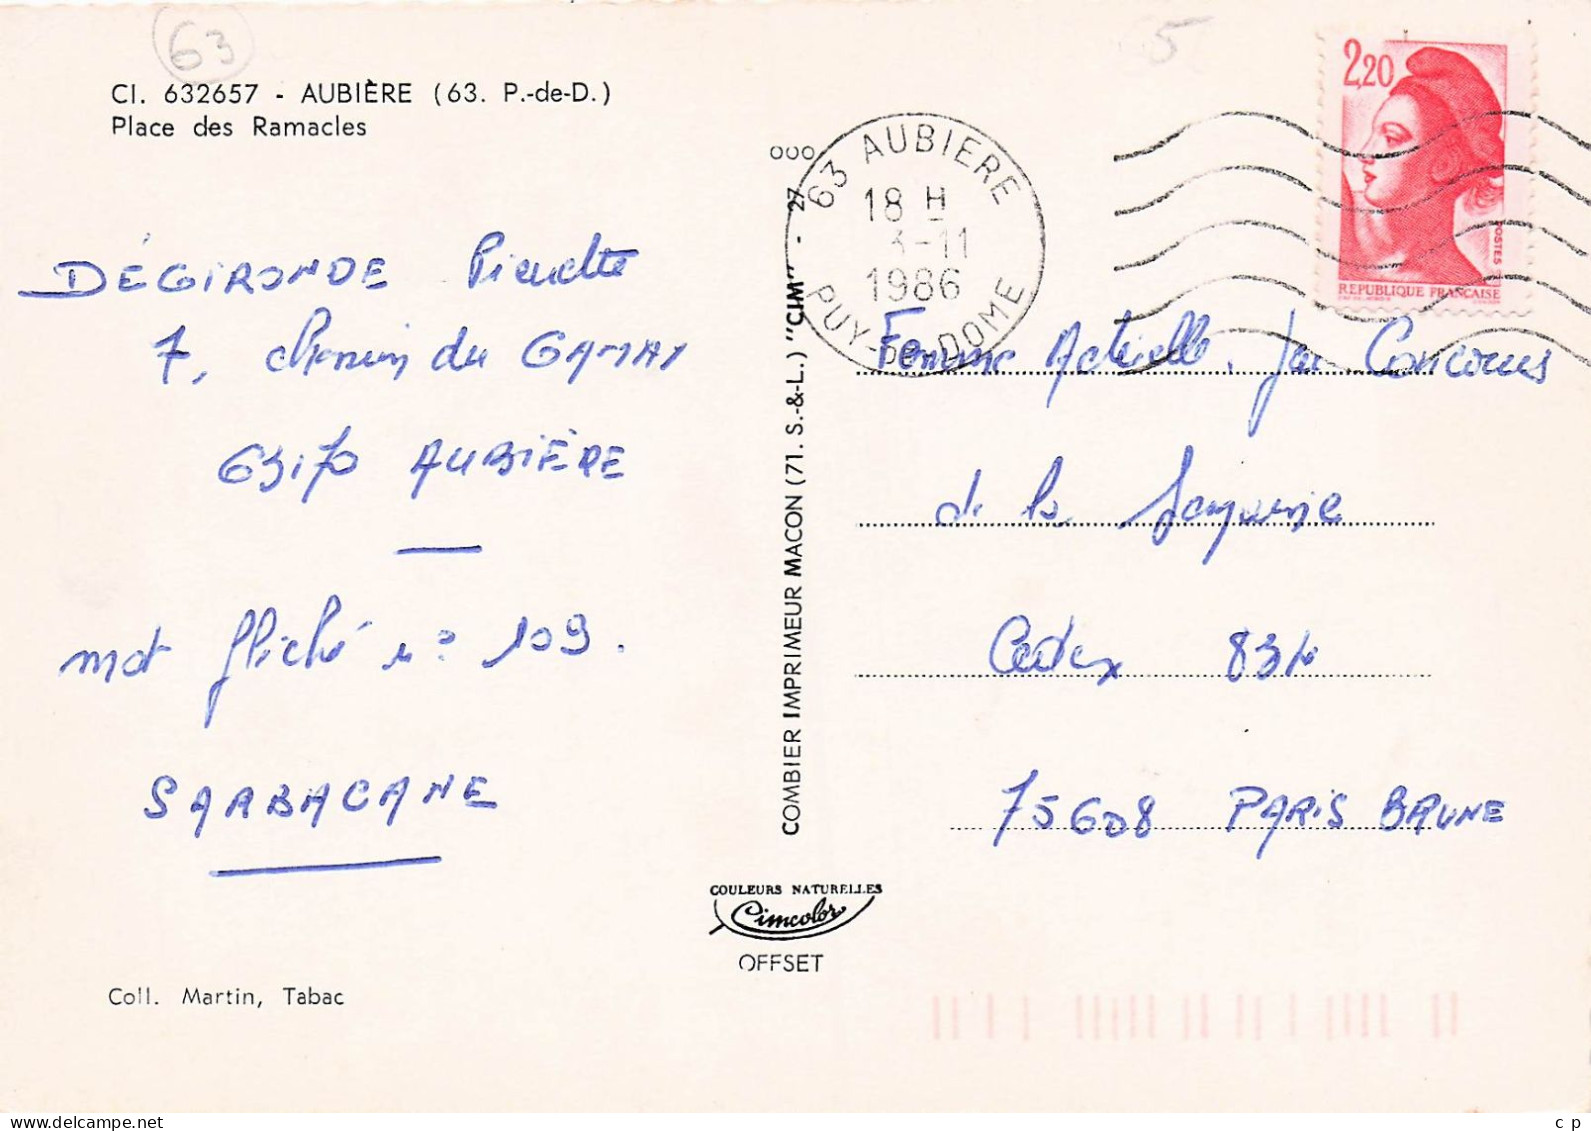 63
5
CI. 632657 - AUBIÈRE (63. P.-de-D.)
Place des Ramacles
DÉGIRONDE Pierrette
7, chemin du GAMAY
63170 AUBIÈRE
mot fléché n° 109.
SARBACANE
Coll. Martin, Tabac
COMBIER IMPRIMEUR MACON (71. S.-&-L.) "CIM" - 27
COULEURS NATURELLES
Cimcolor
OFFSET
63 AUBIERE
18 H
3-11
1986
PUY-de-DOME
2,20
POSTES
REPUBLIQUE FRANÇAISE
Femme Actuelle. Jeu Concours
de la Semaine
Cedex 8310
75608 PARIS BRUNE
c p